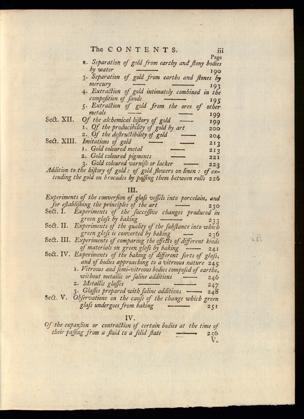 The CONTENTS. iii
Page
2. Separation of gold from earthy and stony bodies
by water 190
3. Separation of gold from earths and stones by
mercury 193
4. Extraction of gold intimately combined in the
composition of sands 195
5. Extraction of gold from the ores of other
metals 199
Sect. XII. Of the alchemical history of gold 199
1. Of the producibility of gold by art 200
2. Of the destructibility of gold 204
Sect. XIII. Imitations of gold 213
1. Gold coloured metal 213
2. Gold coloured pigments 221
3. Gold coloured varnish or lacker 223
Addition to the history of gold: of gold flowers on linen: of ex-
tending the gold on brocades by passing them between rolls 226
III.
Experiments of the conversion of glass vessels into porcelain, and
for establishing the principles of the art 230
Sect. I. Experiments of the successive changes produced in
green glass by baking 233
Sect. II. Experiments of the quality of the substance into which
green glass is converted by baking 236
Sect. III. Experiments of comparing the effects of different kinds
of materials in green glass by baking 241
Sect. IV. Experiments of the baking of different sorts of glass,
and of bodies approaching to a vitreous nature 245
1. Vitreous and semi-vitreous bodies composed of earths,
without metallic or saline additions 246
2. Metallic glasses 247
3. Glasses prepared with saline additions 248
Sect. V. Observations on the cause of the change which green
glass undergoes from baking 251
IV.
Of the expansion or contraction of certain bodies at the time of
their passing from a fluid to a solid state 256
V.